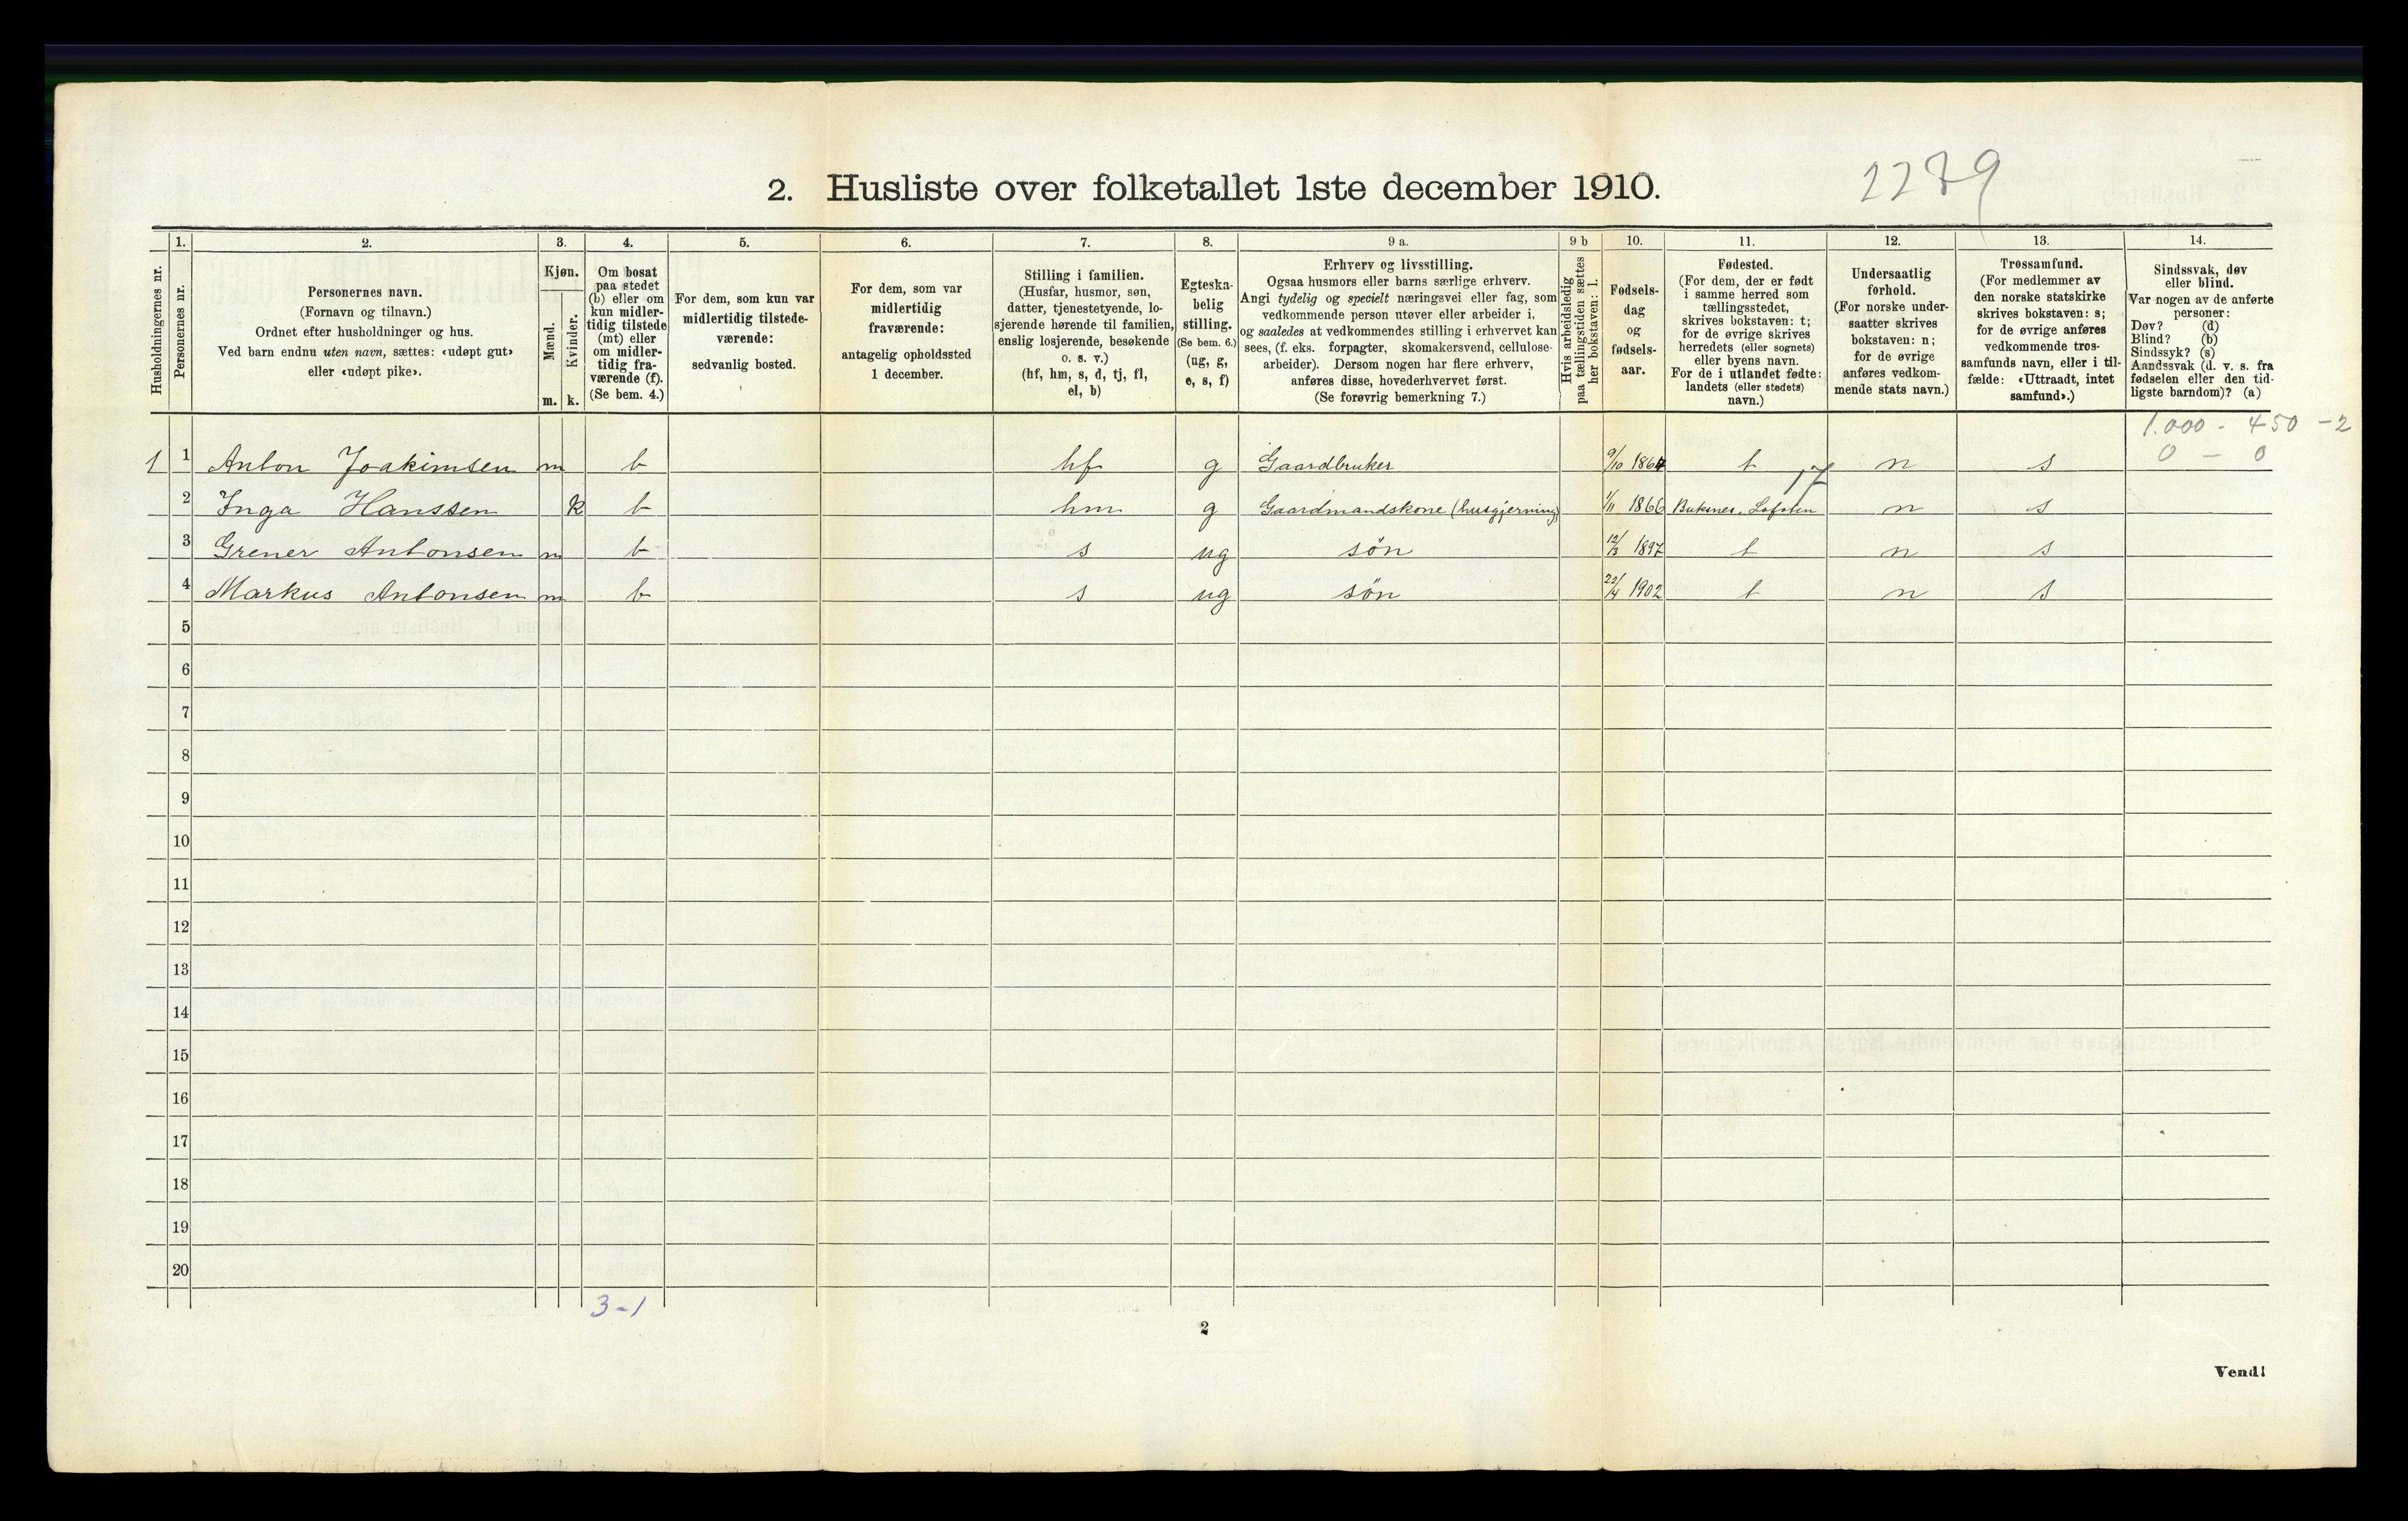 2279
2. Husliste over folketallet 1ste december 1910.
Husholdningernes nr.
1.
Personernes nr.
2.
Personernes navn.
(Fornavn og tilnavn.)
Ordnet efter husholdninger og hus.
Ved barn endnu uten navn, sættes: «udøpt gut»
eller «udøpt pike».
3.
Kjøn.
Mænd.
Kvinder.
m. k.
4.
Om bosat
paa stedet
(b) eller om
kun midler-
tidig tilstede
(mt) eller
om midler-
tidig fra-
værende (f).
(Se bem. 4.)
5.
For dem, som kun var
midlertidig tilstede-
værende:
sedvanlig bosted.
6.
For dem, som var
midlertidig
fraværende:
antagelig opholdssted
1 december.
7.
Stilling i familien.
(Husfar, husmor, søn,
datter, tjenestetyende, lo-
sjerende hørende til familien,
enslig losjerende, besøkende
o. s. v.)
(hf, hm, s, d, tj, fl,
el, b)
8.
Egteska-
belig
stilling.
(Se bem. 6.)
(ug, g,
e, s, f)
9 a.
Erhverv og livsstilling.
Ogsaa husmors eller barns særlige erhverv.
Angi tydelig og specielt næringsvei eller fag, som
vedkommende person utøver eller arbeider i,
og saaledes at vedkommendes stilling i erhvervet kan
sees, (f. eks. forpagter, skomakersvend, cellulose-
arbeider). Dersom nogen har flere erhverv,
anføres disse, hovederhvervet først.
(Se forøvrig bemerkning 7.)
9 b
Hvis arbeidsledig
paa tællingstiden sættes
her bokstaven: l.
10.
Fødsels-
dag
og
fødsels-
aar.
11.
Fødested.
(For dem, der er født
i samme herred som
tællingsstedet,
skrives bokstaven: t;
for de øvrige skrives
herredets (eller sognets)
eller byens navn.
For de i utlandet fødte:
landets (eller stedets)
navn.)
12.
Undersaatlig
forhold.
(For norske under-
saatter skrives
bokstaven: n;
for de øvrige
anføres vedkom-
mende stats navn.)
13.
Trossamfund.
(For medlemmer av
den norske statskirke
skrives bokstaven: s;
for de øvrige anføres
vedkommende tros-
samfunds navn, eller i til-
fælde: «Uttraadt, intet
samfund».)
14.
Sindssvak, døv
eller blind.
Var nogen av de anførte
personer:
Døv? (d)
Blind? (b)
Sindssyk? (s)
Aandssvak (d. v. s. fra
fødselen eller den tid-
ligste barndom)? (a)
1.000 - 450 - 2
0 - 0
1 1 Anton Joakimsen m b hf g Gaardbruker 9/10 1864 t n s
17
2 Inga Hanssen k b hm g Gaardmandskone (husgjerning) 1/11 1866 Buksnes, Lofoten n s
3 Grener Antonsen m b s ug søn 12/3 1897 t n s
4 Markus Antonsen m b s ug søn 22/4 1902 t n s
5
6
7
8
9
10
11
12
13
14
15
16
17
18
19
20
3-1
2
Vend!